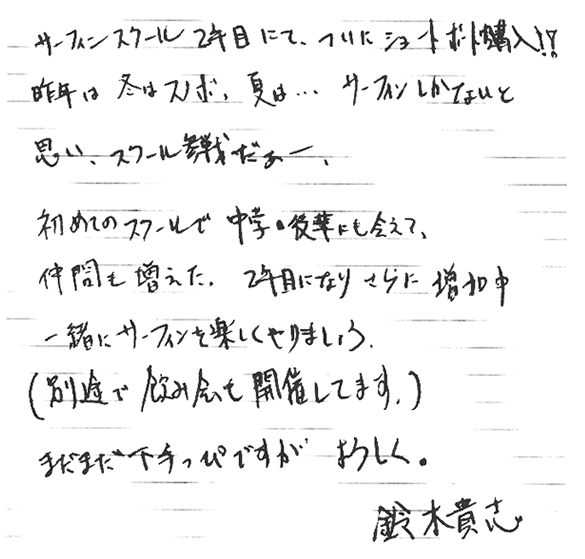 サーフィンスクール2年目にて、ついにショートボード購入!?
昨年は冬はスノボ、夏は… サーフィンしかないと
思い、スクール参戦だぁー、
初めてのスクールで中学の後輩にも会えて、
仲間も増えた。2年目になりさらに増加中
一緒にサーフィンを楽しくやりましょう。
(別途で飲み会も開催してます。)
まだまだ下手っぴですがよろしく。
鈴木貴志